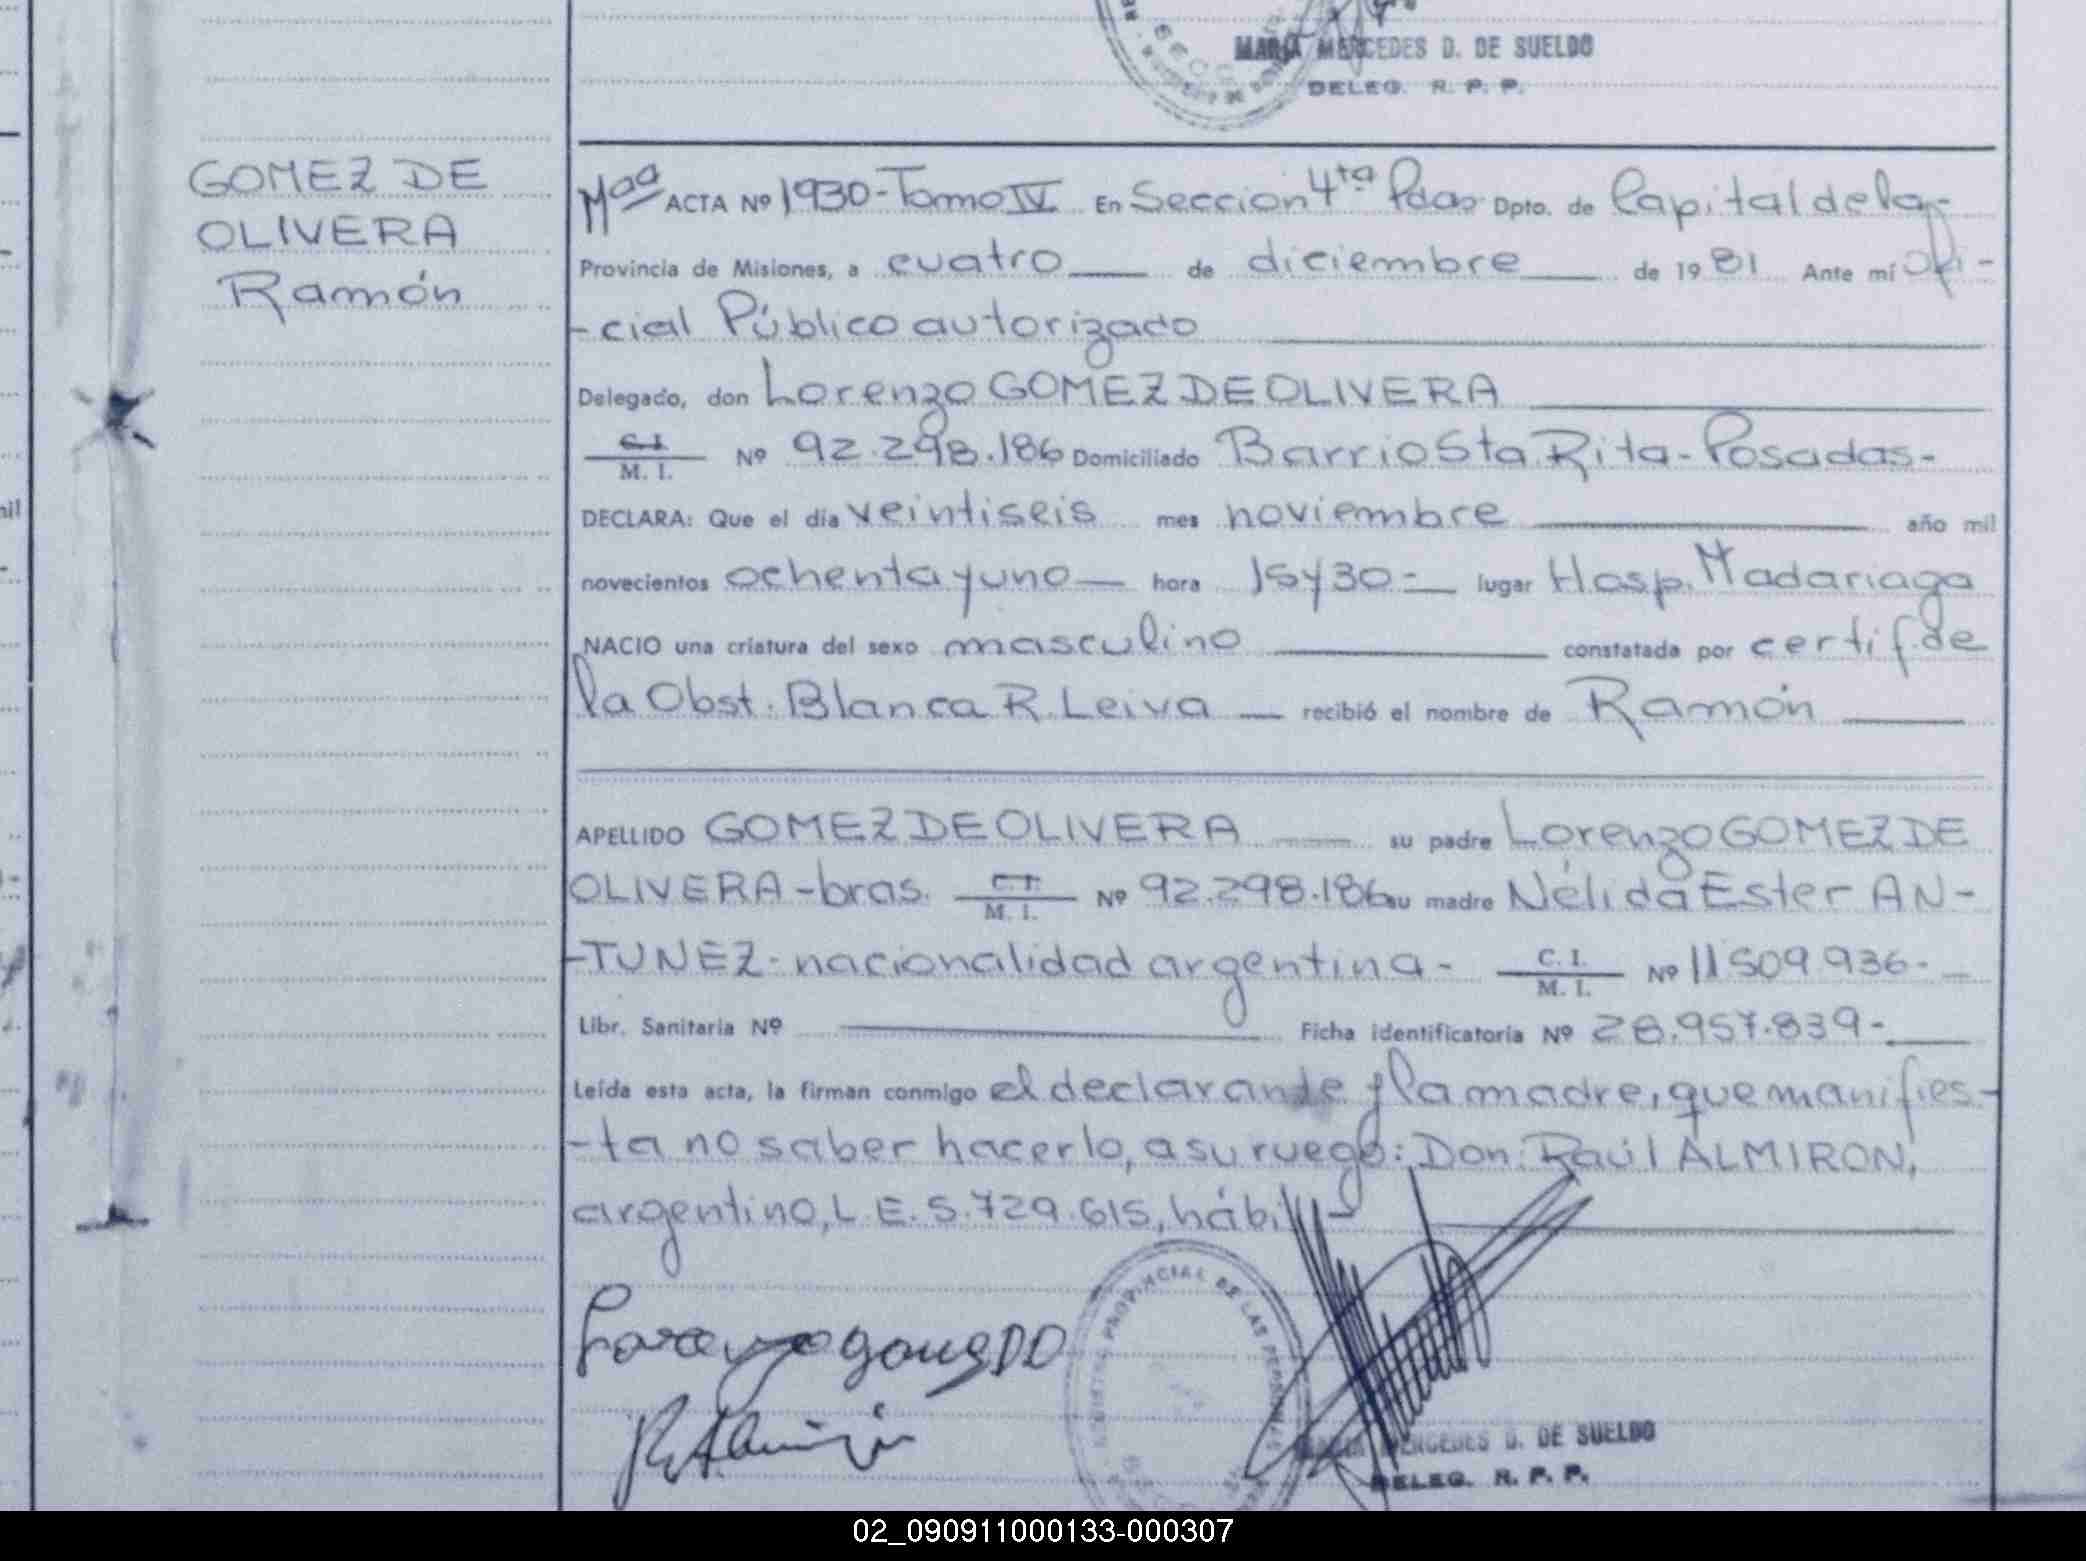 MARÍA MERCEDES D. DE SUELDO
DELEG. R. P. P.
GOMEZ DE
OLIVERA
Ramón
ACTA Nº 1930-Tomo IV En Sección 4ta Pdas Dpto. de Capital de la-
Provincia de Misiones, a cuatro de diciembre de 1981 Ante mí Ofi-
-cial Público autorizado
Delegado, don Lorenzo GOMEZ DE OLIVERA
C.I. / M. I. Nº 92.298.186 Domiciliado Barrio Sta Rita-Posadas-
DECLARA: Que el día veintiseis mes noviembre año mil
novecientos ochenta y uno hora 15y30- lugar Hosp. Madariaga
NACIO una criatura del sexo masculino constatada por certif. de
la Obst. Blanca R. Leiva recibió el nombre de Ramón
APELLIDO GOMEZ DE OLIVERA su padre Lorenzo GOMEZ DE
OLIVERA-bras. C.I. / M. I. Nº 92.298.186 su madre Nélida Ester AN-
-TUNEZ-nacionalidad argentina- C. I. / M. I. Nº 11509936-
Libr. Sanitaria Nº Ficha identificatoria Nº 28.957.839-
Leída esta acta, la firman conmigo el declarante y la madre, que manifies-
-ta no saber hacerlo, a su ruego: Don: Raúl ALMIRON,
argentino, L.E. 5.729.615, hábil-
PROVINCIAL DE LAS PERSONAS
MARÍA MERCEDES D. DE SUELDO
DELEG. R. P. P.
02_090911000133-000307